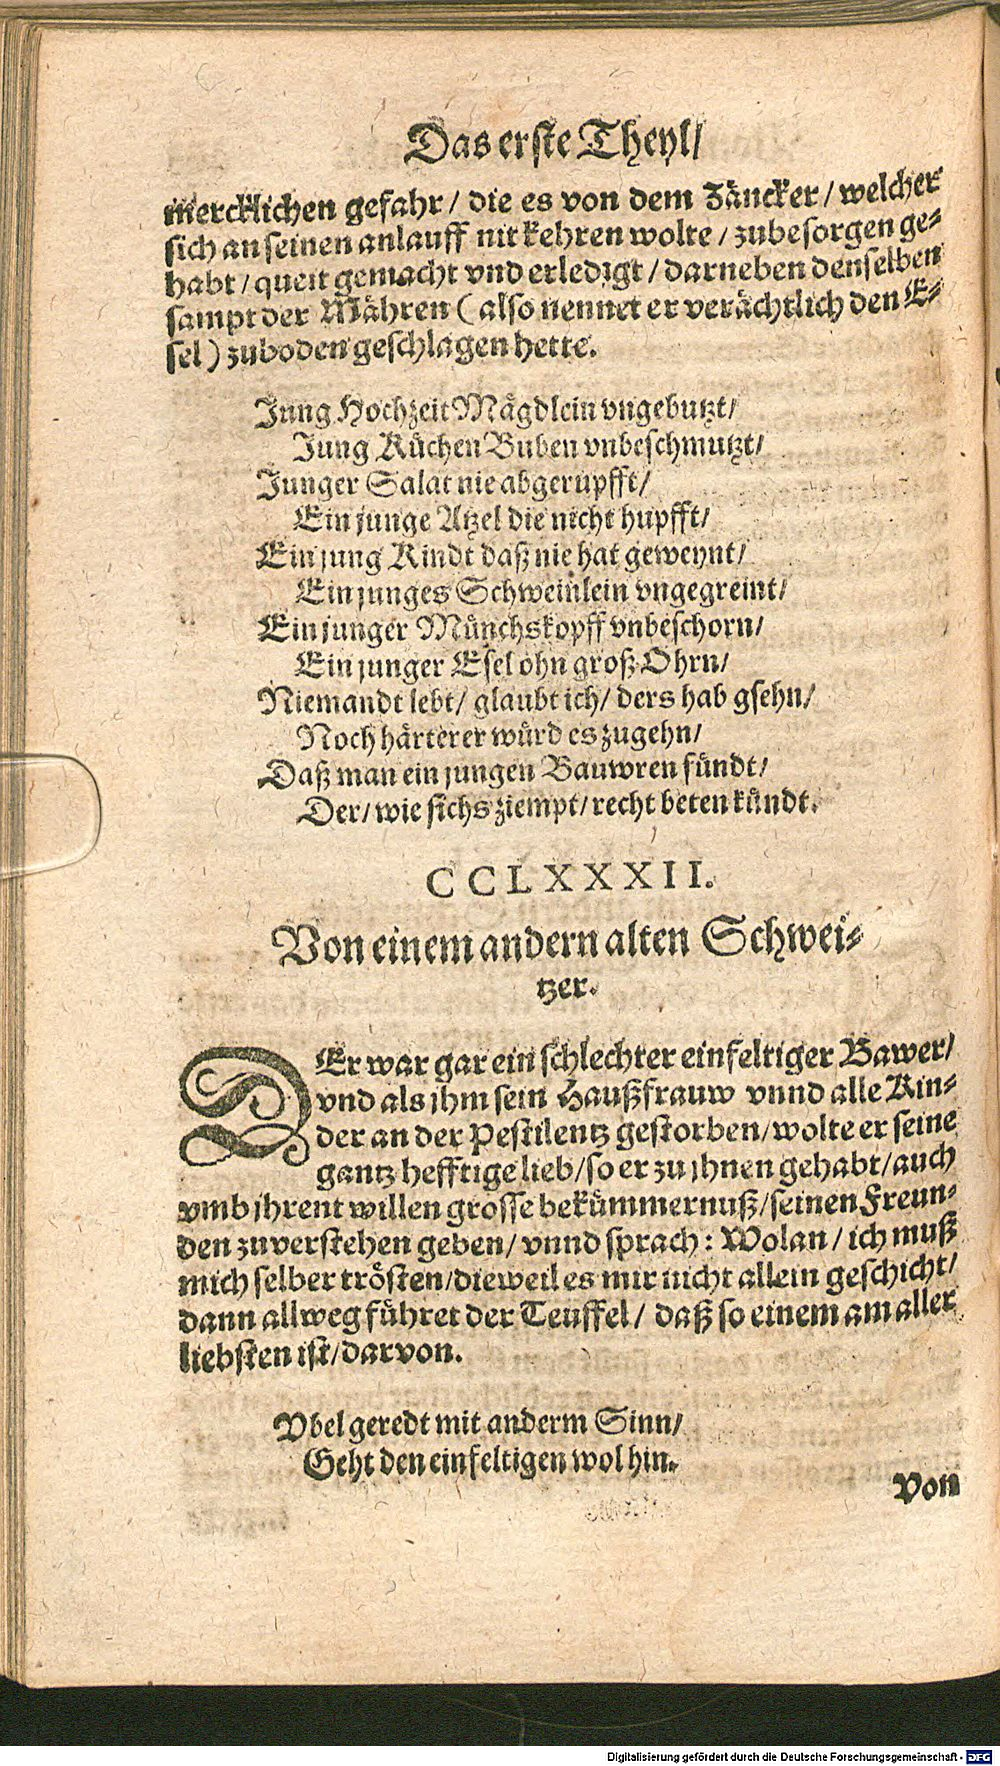 Das erste Theyl/
mercklichen gefahr/ die es von dem Zäncker/ welcher
sich an seinen anlauff nit kehren wolte/ zubesorgen ge-
habt/ queit gemacht vnd erledigt/ darneben denselben
sampt der Mähren (also nennet er verächtlich den E-
sel) zuboden geschlagen hette.
Jung Hochzeit Mägdlein vngebutzt/
Jung Küchen Buben vnbeschmutzt/
Junger Salat nie abgerupfft/
Ein junge Atzel die nicht hupfft/
Ein jung Kindt daß nie hat geweynt/
Ein junges Schweinlein vngegreint/
Ein junger Münchskopff vnbeschorn/
Ein junger Esel ohn groß Ohrn/
Niemandt lebt/ glaubt ich/ ders hab gsehn/
Noch härterer würd es zugehn/
Daß man ein jungen Bauwren fündt/
Der/ wie sichs ziempt/ recht beten kündt.
CCLXXXII.
Von einem andern alten Schwei-
tzer.
DEr war gar ein schlechter einfeltiger Bawer/
vnd als jhm sein Haußfrauw vnnd alle Kin-
der an der Pestilentz gestorben/ wolte er seine
gantz hefftige lieb/ so er zu jhnen gehabt/ auch
vmb jhrent willen grosse bekümmernuß/ seinen Freun-
den zuverstehen geben/ vnnd sprach: Wolan/ ich muß
mich selber trösten/ dieweil es mir nicht allein geschicht/
dann allweg führet der Teuffel/ daß so einem am aller
liebsten ist/ darvon.
Vbel geredt mit anderm Sinn/
Geht den einfeltigen wol hin.
Von
Digitalisierung gefördert durch die Deutsche Forschungsgemeinschaft - DFG